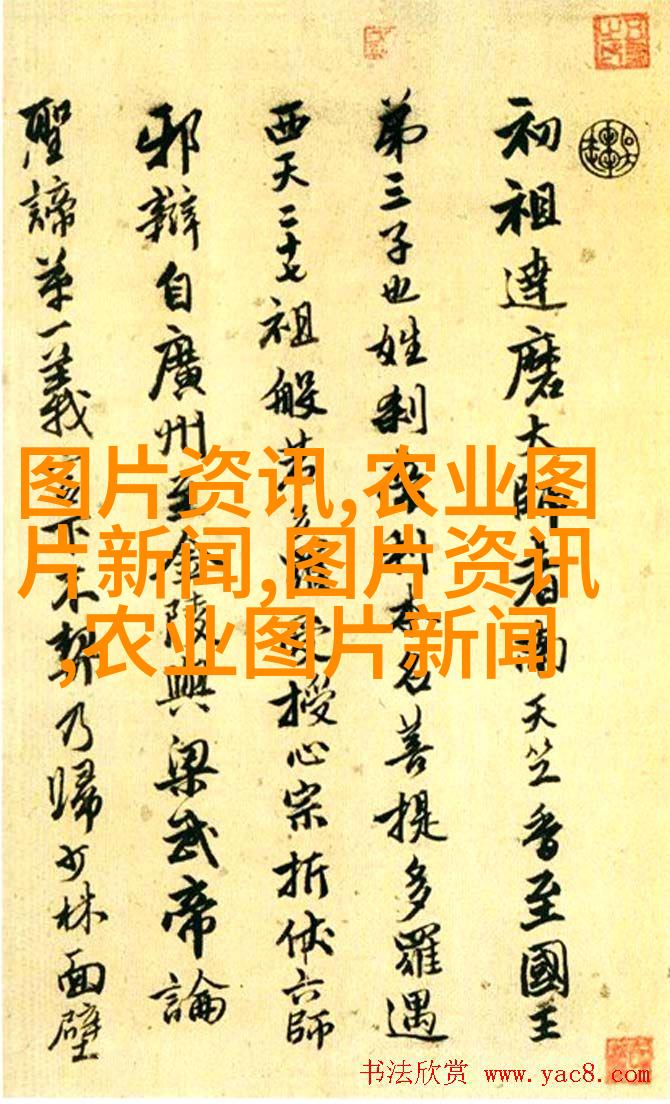 初祖達磨大師者南天竺香至國王
第三子也姓刹利本名菩提多羅遇
西天二十七祖般若授心宗折伏六師
邪辯自廣州至金陵與梁武帝論
聖諦第一義不契乃歸少林面壁
图片资讯,农业图
片新闻,图片资讯
,农业图片新闻
书法欣赏 www.yac8.com